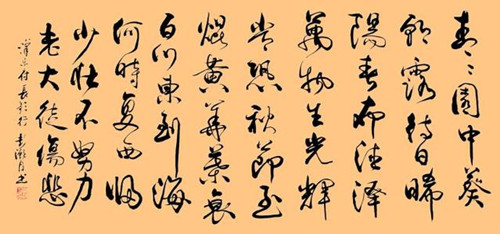 青々園中葵
朝露待日晞
陽春布德澤
萬物生光輝
常恐秋節至
焜黃華葉衰
百川東到海
何時复西歸
少壯不努力
老大徒傷悲
長歌行